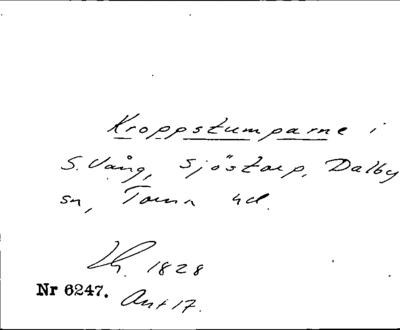 Kroppstumparne i
S. Vång, Sjöstorp, Dalby
sn, Torna hd.
Lh. 1828
Nr 6247. Ant 17.